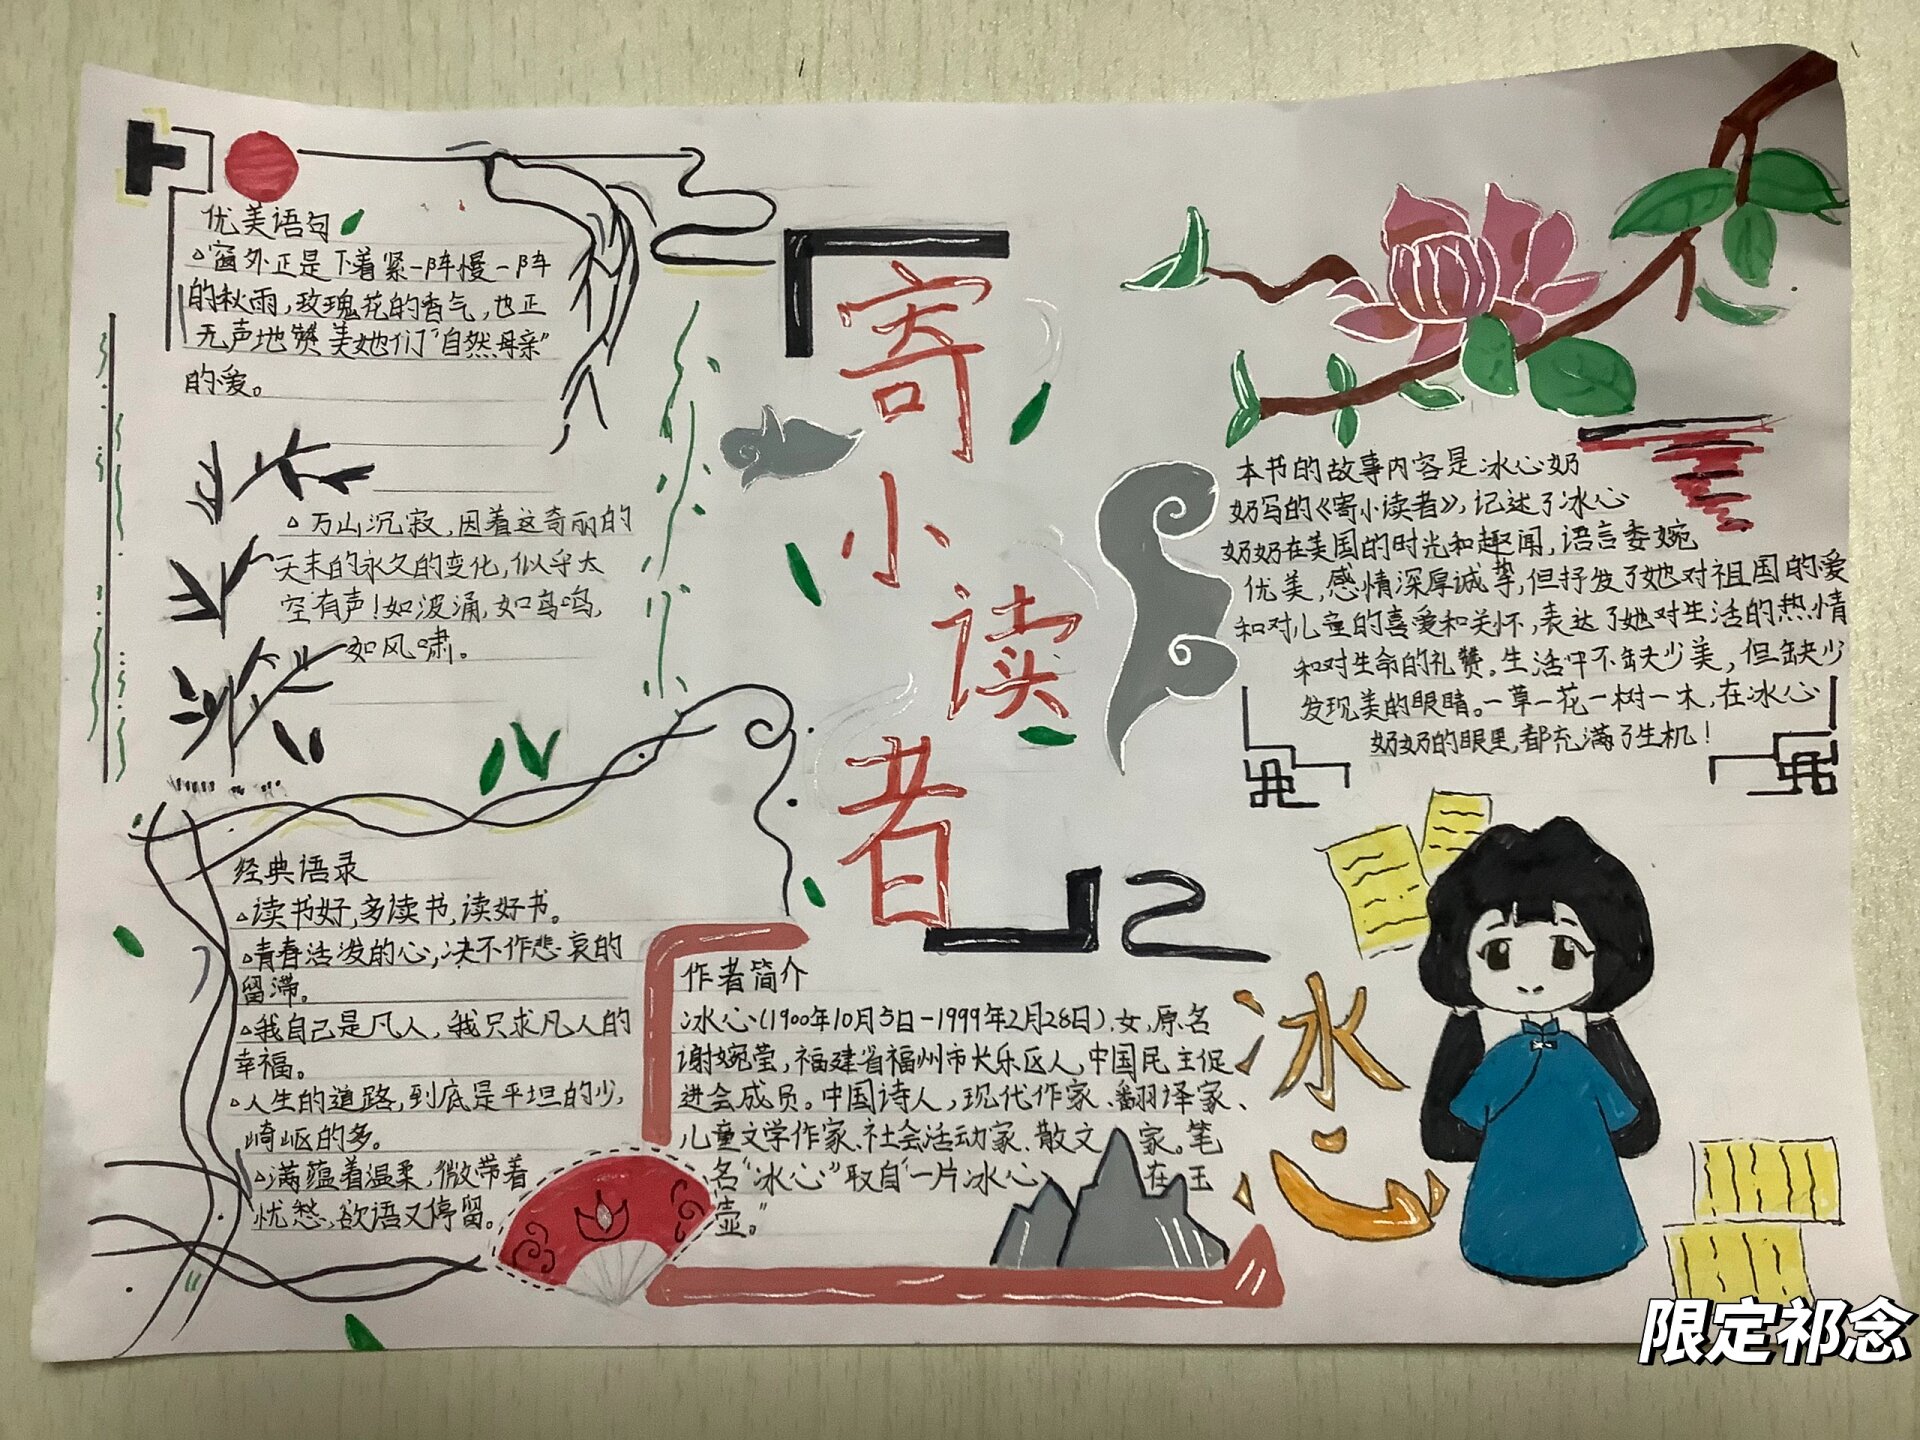 优美语句
△窗外正是下着紧一阵慢一阵
的秋雨,玫瑰花的香气,也正
无声地赞美她们“自然母亲”
的爱。
△万山沉寂,因着这奇丽的
天末的永久的变化,似乎太
空有声!如波涌,如鸟鸣,
如风啸。
经典语录
△读书好,多读书,读好书。
△青春活泼的心,决不作悲哀的
留滞。
△我自己是凡人,我只求凡人的
幸福。
△人生的道路,到底是平坦的少,
崎岖的多。
△满蕴着温柔,微带着
忧愁,欲语又停留。
寄
小
读
者
作者简介
冰心(1900年10月5日-1999年2月28日),女,原名
谢婉莹,福建省福州市长乐区人,中国民主促
进会成员。中国诗人,现代作家、翻译家、
儿童文学作家、社会活动家、散文家。笔
名“冰心”取自“一片冰心在玉
壶。”
本书的故事内容是冰心奶
奶写的《寄小读者》,记述了冰心
奶奶在美国的时光和趣闻,语言委婉
优美,感情深厚诚挚,但抒发了她对祖国的爱
和对儿童的喜爱和关怀,表达了她对生活的热情
和对生命的礼赞。生活中不缺少美,但缺少
发现美的眼睛。一草一花一树一木,在冰心
奶奶的眼里,都充满了生机!
冰
心
限定祁念